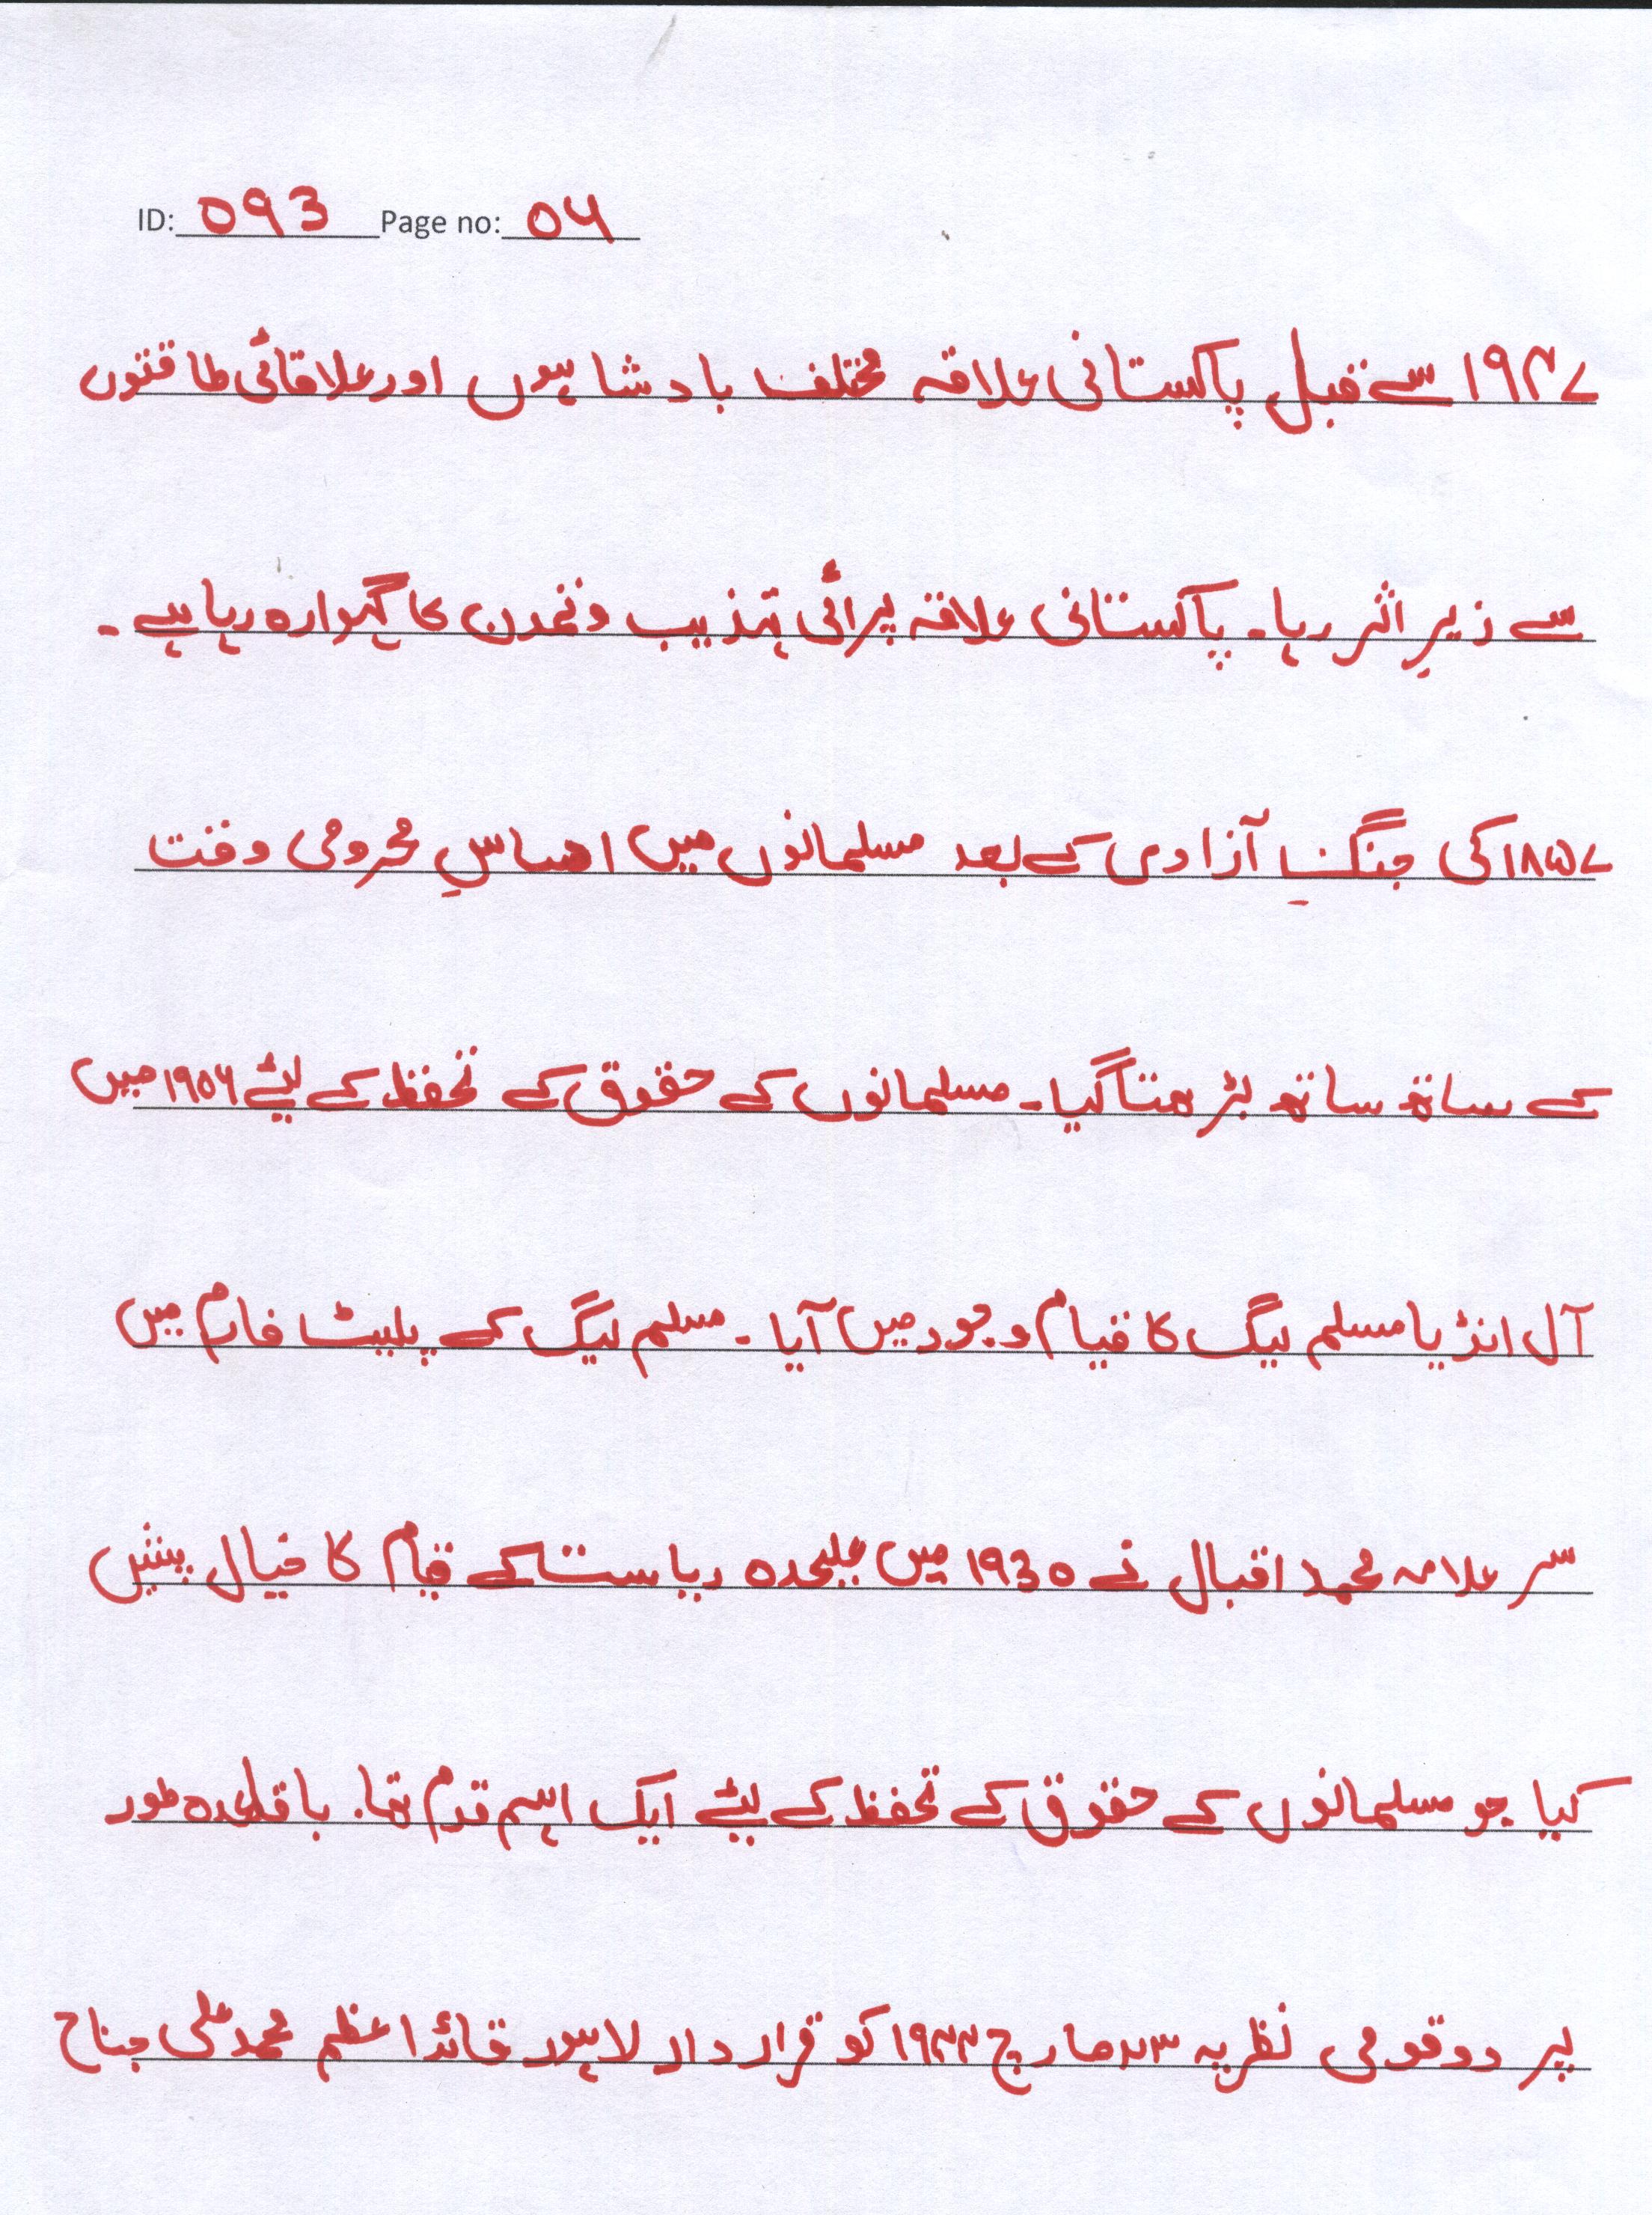 ID: 093 Page no: 04
۱۹۴۷ سے قبل پاکستانی علاقہ مختلف بادشاہوں اور علاقائی طاقتوں
سے زیرِ اثر رہا۔ پاکستانی علاقہ پرائی تہذیب و تمدن کا گہوارہ رہا ہے۔
۱۸۵۷ کی جنگِ آزادی کے بعد مسلمانوں میں احساسِ محرومی وقت
کے ساتھ ساتھ بڑھتا گیا۔ مسلمانوں کے حقوق کے تحفظ کے لیئے ۱۹۵۶ میں
آل انڈیا مسلم لیگ کا قیام وجود میں آیا۔ مسلم لیگ کے پلیٹ فارم میں
سر علامہ محمد اقبال نے 1930 میں علیحدہ ریاست کے قیام کا خیال پیش
کیا جو مسلمانوں کے حقوق کے تحفظ کے لیئے ایک اہم قدم تھا۔ باقاعدہ طور
پر دو قومی نظریہ ۲۳ مارچ ۱۹۴۴ کو قرار داد لاہور قائد اعظم محمد علی جناح